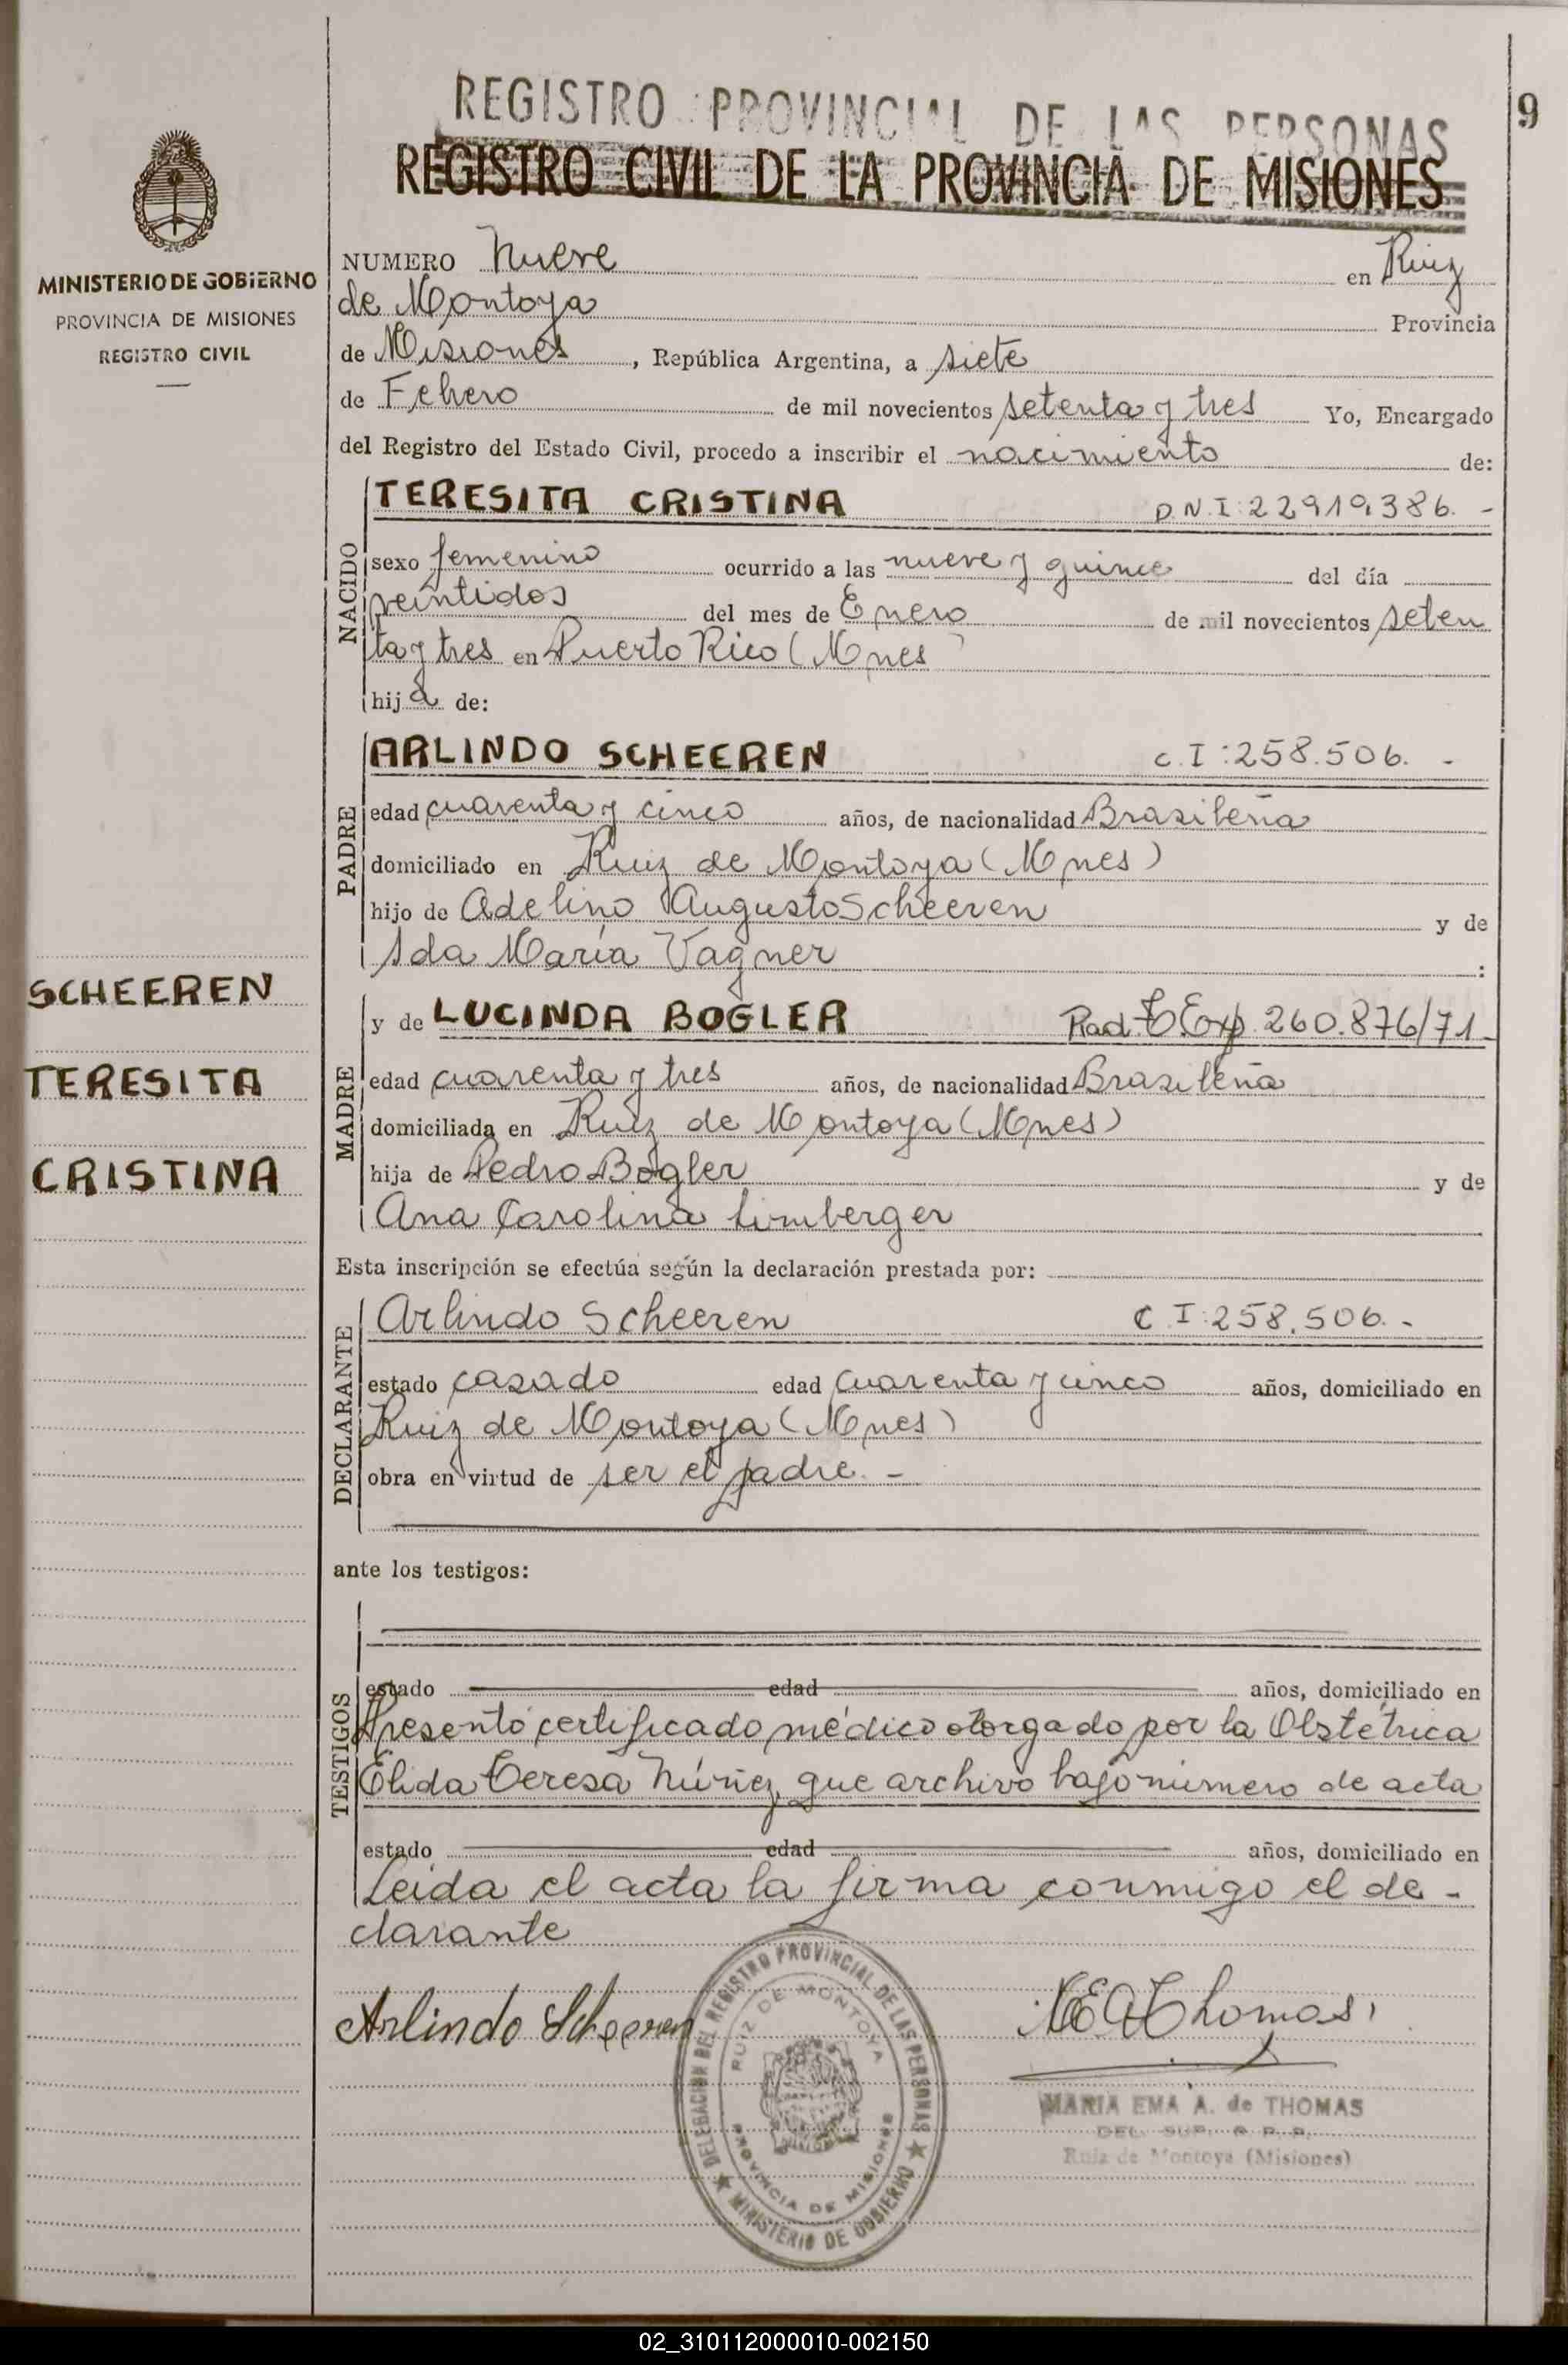 9
REGISTRO PROVINCIAL DE LAS PERSONAS
REGISTRO CIVIL DE LA PROVINCIA DE MISIONES
MINISTERIO DE GOBIERNO
PROVINCIA DE MISIONES
REGISTRO CIVIL
SCHEEREN
TERESITA
CRISTINA
NUMERO Nueve en Ruiz
de Montoya Provincia
de Misiones, República Argentina, a siete
de Febrero de mil novecientos setenta y tres Yo, Encargado
del Registro del Estado Civil, procedo a inscribir el nacimiento de:
NACIDO
TERESITA CRISTINA D.N.I: 22919.386. -
sexo femenino ocurrido a las nueve y quince del día
veintidos del mes de Enero de mil novecientos seten
ta y tres en Puerto Rico (Mnes)
hija de:
PADRE
ARLINDO SCHEEREN C.I: 258.506. -
edad cuarenta y cinco años, de nacionalidad Brasileña
domiciliado en Ruiz de Montoya (Mnes)
hijo de Adelino Augusto Scheeren y de
Ida María Vagner :
MADRE
y de LUCINDA BOGLER Rad Exp. 260.876/71
edad cuarenta y tres años, de nacionalidad Brasileña
domiciliada en Ruiz de Montoya (Mnes)
hija de Pedro Bogler y de
Ana Carolina Limberger
Esta inscripción se efectúa según la declaración prestada por:
DECLARANTE
Arlindo Scheeren C I: 258.506. -
estado casado edad cuarenta y cinco años, domiciliado en
Ruiz de Montoya (Mnes)
obra en virtud de ser el padre. -
ante los testigos:
TESTIGOS
estado edad años, domiciliado en
Presentó certificado médico otorgado por la Obstétrica
Élida Teresa Núñez, que archivo bajo número de acta
estado edad años, domiciliado en
Leída el acta la firma conmigo el de -
clarante
Arlindo Scheeren
MEAThomas
DELEGACION DEL REGISTRO PROVINCIAL DE LAS PERSONAS
RUIZ DE MONTOYA
PROVINCIA DE MISIONES
★ MINISTERIO DE GOBIERNO ★
MARIA EMA A. de THOMAS
DEL. SUP. R. P. P.
Ruiz de Montoya (Misiones)
02_310112000010-002150